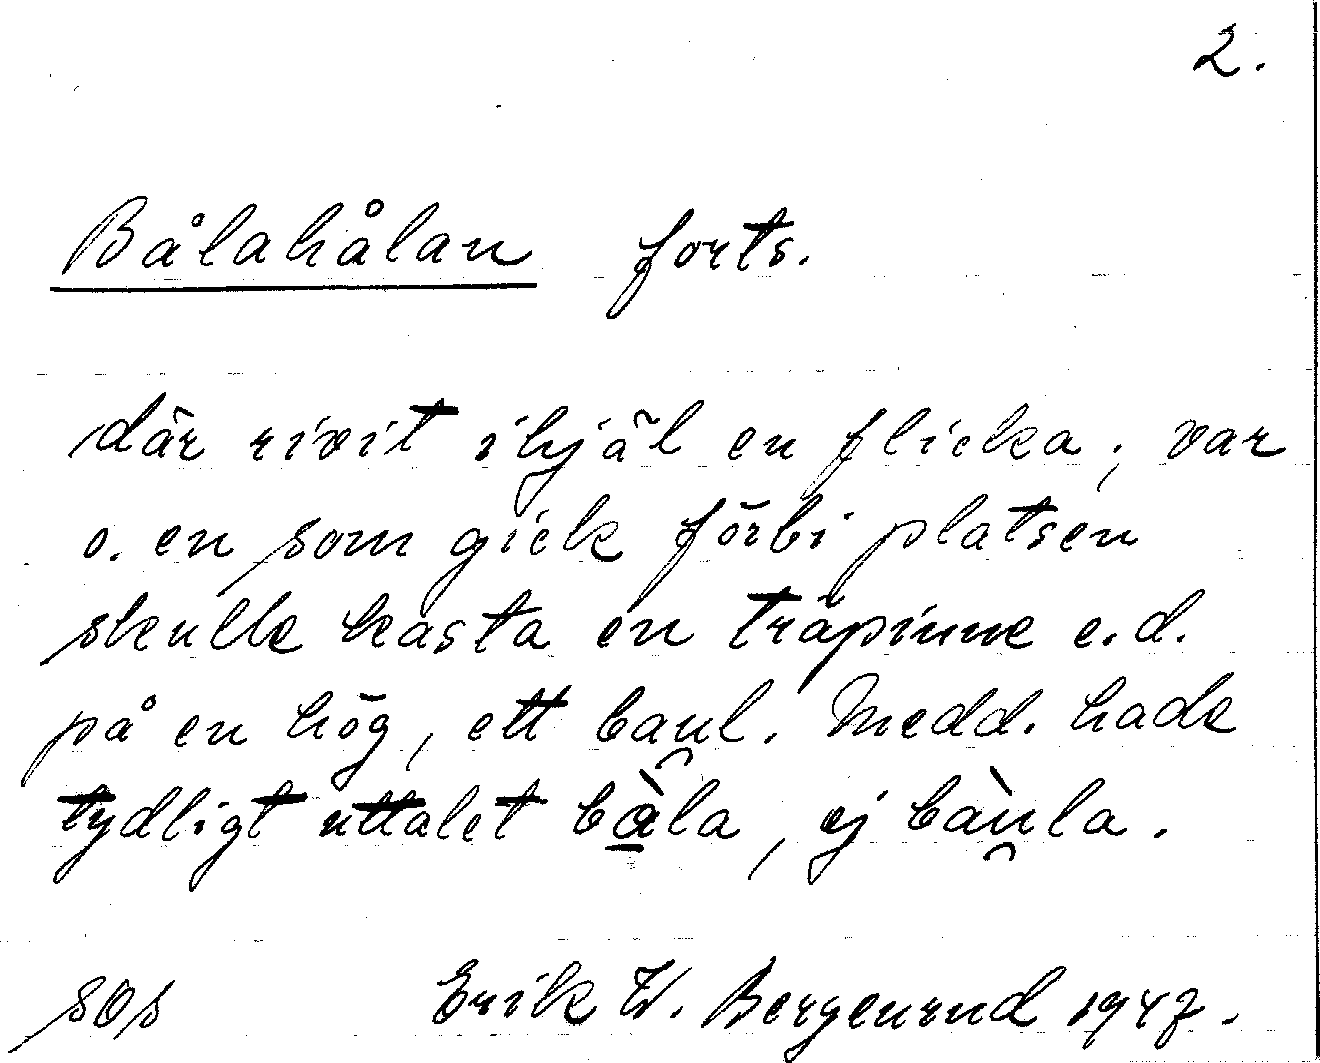 2.
Bålahålan forts.
där rivit ihjäl en flicka; var
o. en som gick förbi platsen
skulle kasta en träpinne e.d.
på en hög, ett bau̯l. Medd. hade
tydligt uttalet bà̱la, ej baù̯la.
SOS Erik W. Bergenrud 1947.